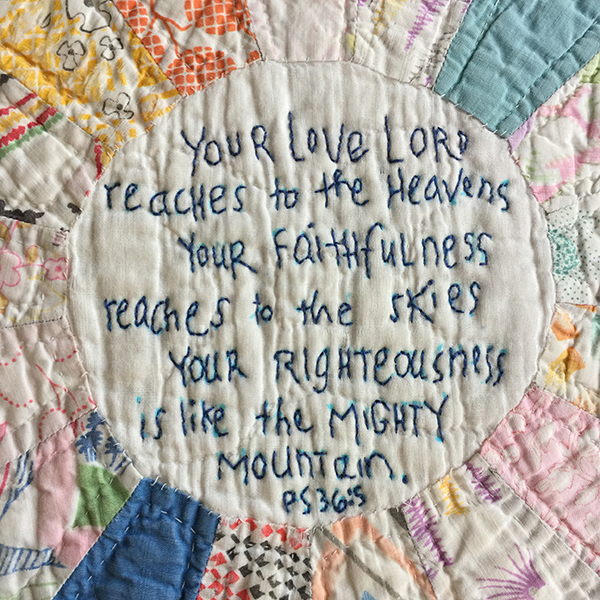 YOUR LOVE LORD
reaches to the Heavens
YOUR FAITHFULNESS
reaches to the skies
YOUR RIGHTEOUSNESS
is like the MIGHTY
MOUNTAIN.
PS36:5